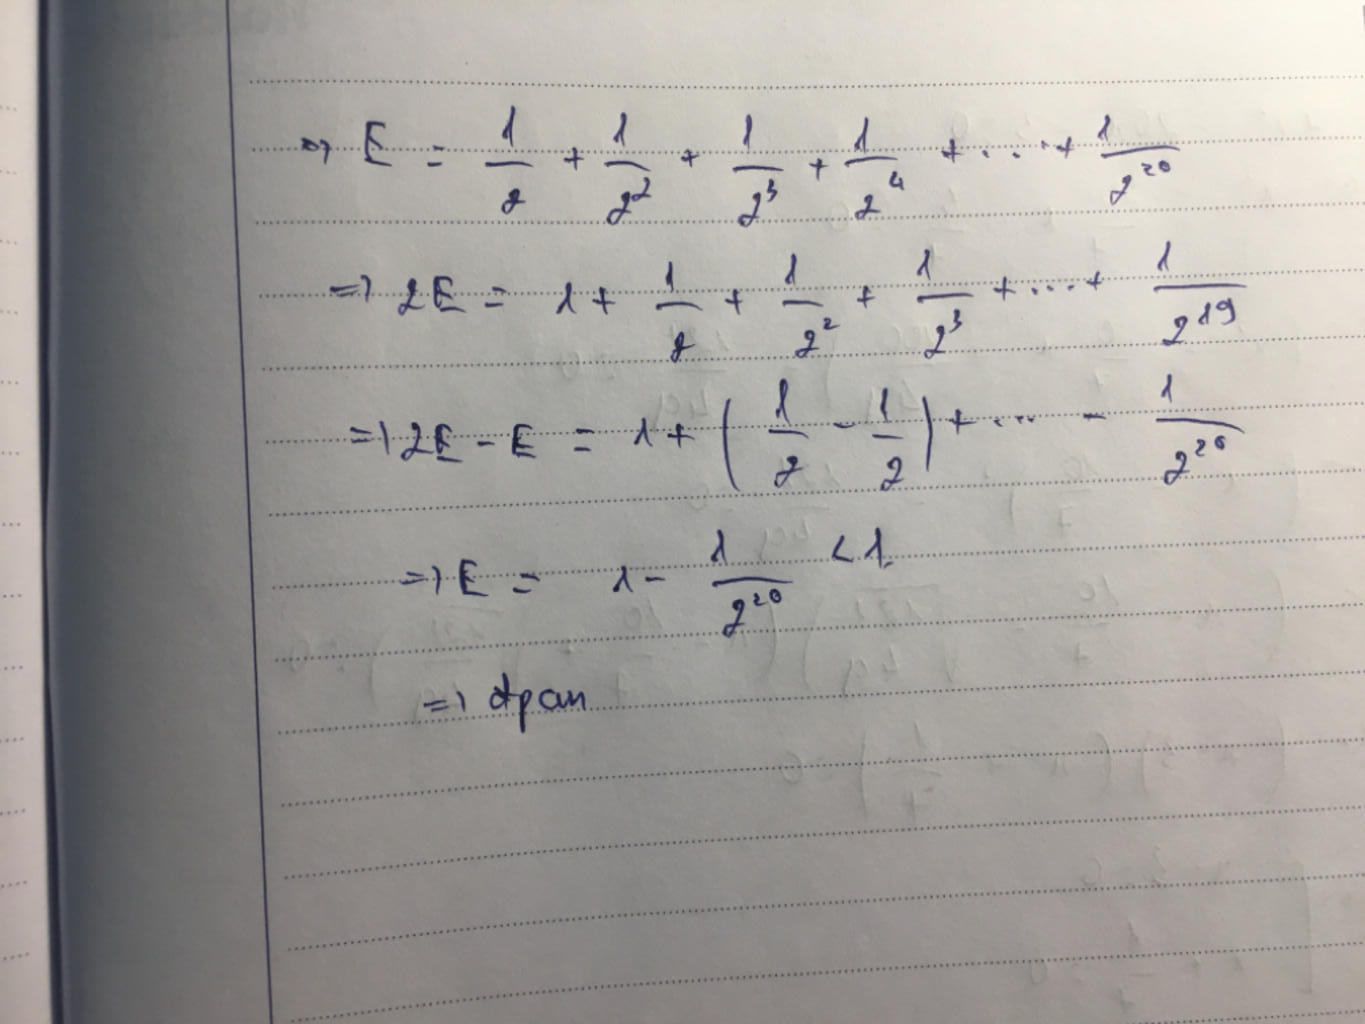 => E = 1/2 + 1/2² + 1/2³ + 1/2⁴ + ... + 1/2²⁰
=> 2E = 1 + 1/2 + 1/2² + 1/2³ + ... + 1/2¹⁹
=> 2E - E = 1 + (1/2 - 1/2) + ... - 1/2²⁰
=> E = 1 - 1/2²⁰ < 1.
=> đpcm